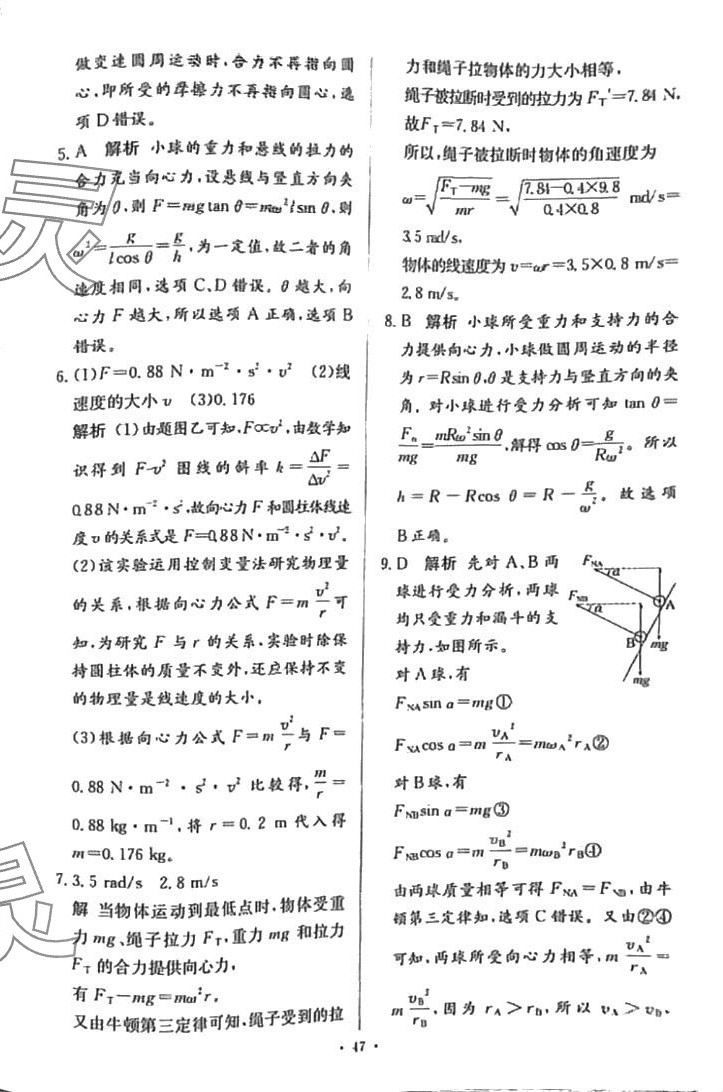 做变速圆周运动时,合力不再指向圆
心,即所受的摩擦力不再指向圆心,选
项 D 错误。
5. A 解析 小球的重力和悬线的拉力的
合力充当向心力,设悬线与竖直方向夹
角为 θ,则 F=mgtan θ=mω²lsin θ,则
ω²=g/(lcos θ)=g/h,为一定值,故二者的角
速度相同,选项 C、D 错误。θ 越大,向
心力 F 越大,所以选项 A 正确,选项 B
错误。
6. (1)F=0.88 N·m⁻²·s²·v² (2)线
速度的大小 v (3)0.176
解析 (1)由题图乙可知,F∝v²,由数学知
识得到 F-v² 图线的斜率 k=ΔF/Δv²=
0.88 N·m⁻²·s²,故向心力 F 和圆柱体线速
度 v 的关系式是 F=0.88 N·m⁻²·s²·v²。
(2)该实验运用控制变量法研究物理量
的关系,根据向心力公式 F=m v²/r 可
知,为研究 F 与 r 的关系,实验时除保
持圆柱体的质量不变外,还应保持不变
的物理量是线速度的大小。
(3)根据向心力公式 F=m v²/r 与 F=
0.88 N·m⁻²·s²·v² 比较得,m/r=
0.88 kg·m⁻¹,将 r=0.2 m 代入得
m=0.176 kg。
7. 3.5 rad/s 2.8 m/s
解 当物体运动到最低点时,物体受重
力 mg、绳子拉力 F_T,重力 mg 和拉力
F_T 的合力提供向心力,
有 F_T-mg=mω²r。
又由牛顿第三定律可知,绳子受到的拉
力和绳子拉物体的力大小相等,
绳子被拉断时受到的拉力为 F_T′=7.84 N,
故 F_T=7.84 N,
所以,绳子被拉断时物体的角速度为
ω=√((F_T-mg)/(mr))=√((7.84-0.4×9.8)/(0.4×0.8)) rad/s=
3.5 rad/s,
物体的线速度为 v=ωr=3.5×0.8 m/s=
2.8 m/s。
8. B 解析 小球所受重力和支持力的合
力提供向心力,小球做圆周运动的半径
为 r=Rsin θ,θ 是支持力与竖直方向的夹
角。对小球进行受力分析可知 tan θ=
F_n/mg=mRω²sin θ/mg,解得 cos θ=g/(Rω²)。所以
h=R-Rcos θ=R-g/ω²。故选项
B 正确。
9. D 解析 先对 A、B 两
球进行受力分析,两球
均只受重力和漏斗的支
持力,如图所示。
F_NA
α
A
F_NB
α
B
mg
mg
对 A 球,有
F_NA sin α=mg①
F_NA cos α=m v_A²/r_A=mω_A²r_A②
对 B 球,有
F_NB sin α=mg③
F_NB cos α=m v_B²/r_B=mω_B²r_B④
由两球质量相等可得 F_NA=F_NB,由牛
顿第三定律知,选项 C 错误。又由②④
可知,两球所受向心力相等,m v_A²/r_A=
m v_B²/r_B,因为 r_A>r_B,所以 v_A>v_B,
· 47 ·
灵
灵